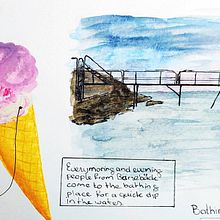 Everymoring and evening
people from Barsebäck
come to the bathing
place for a quick dip
in the water.
Bathin